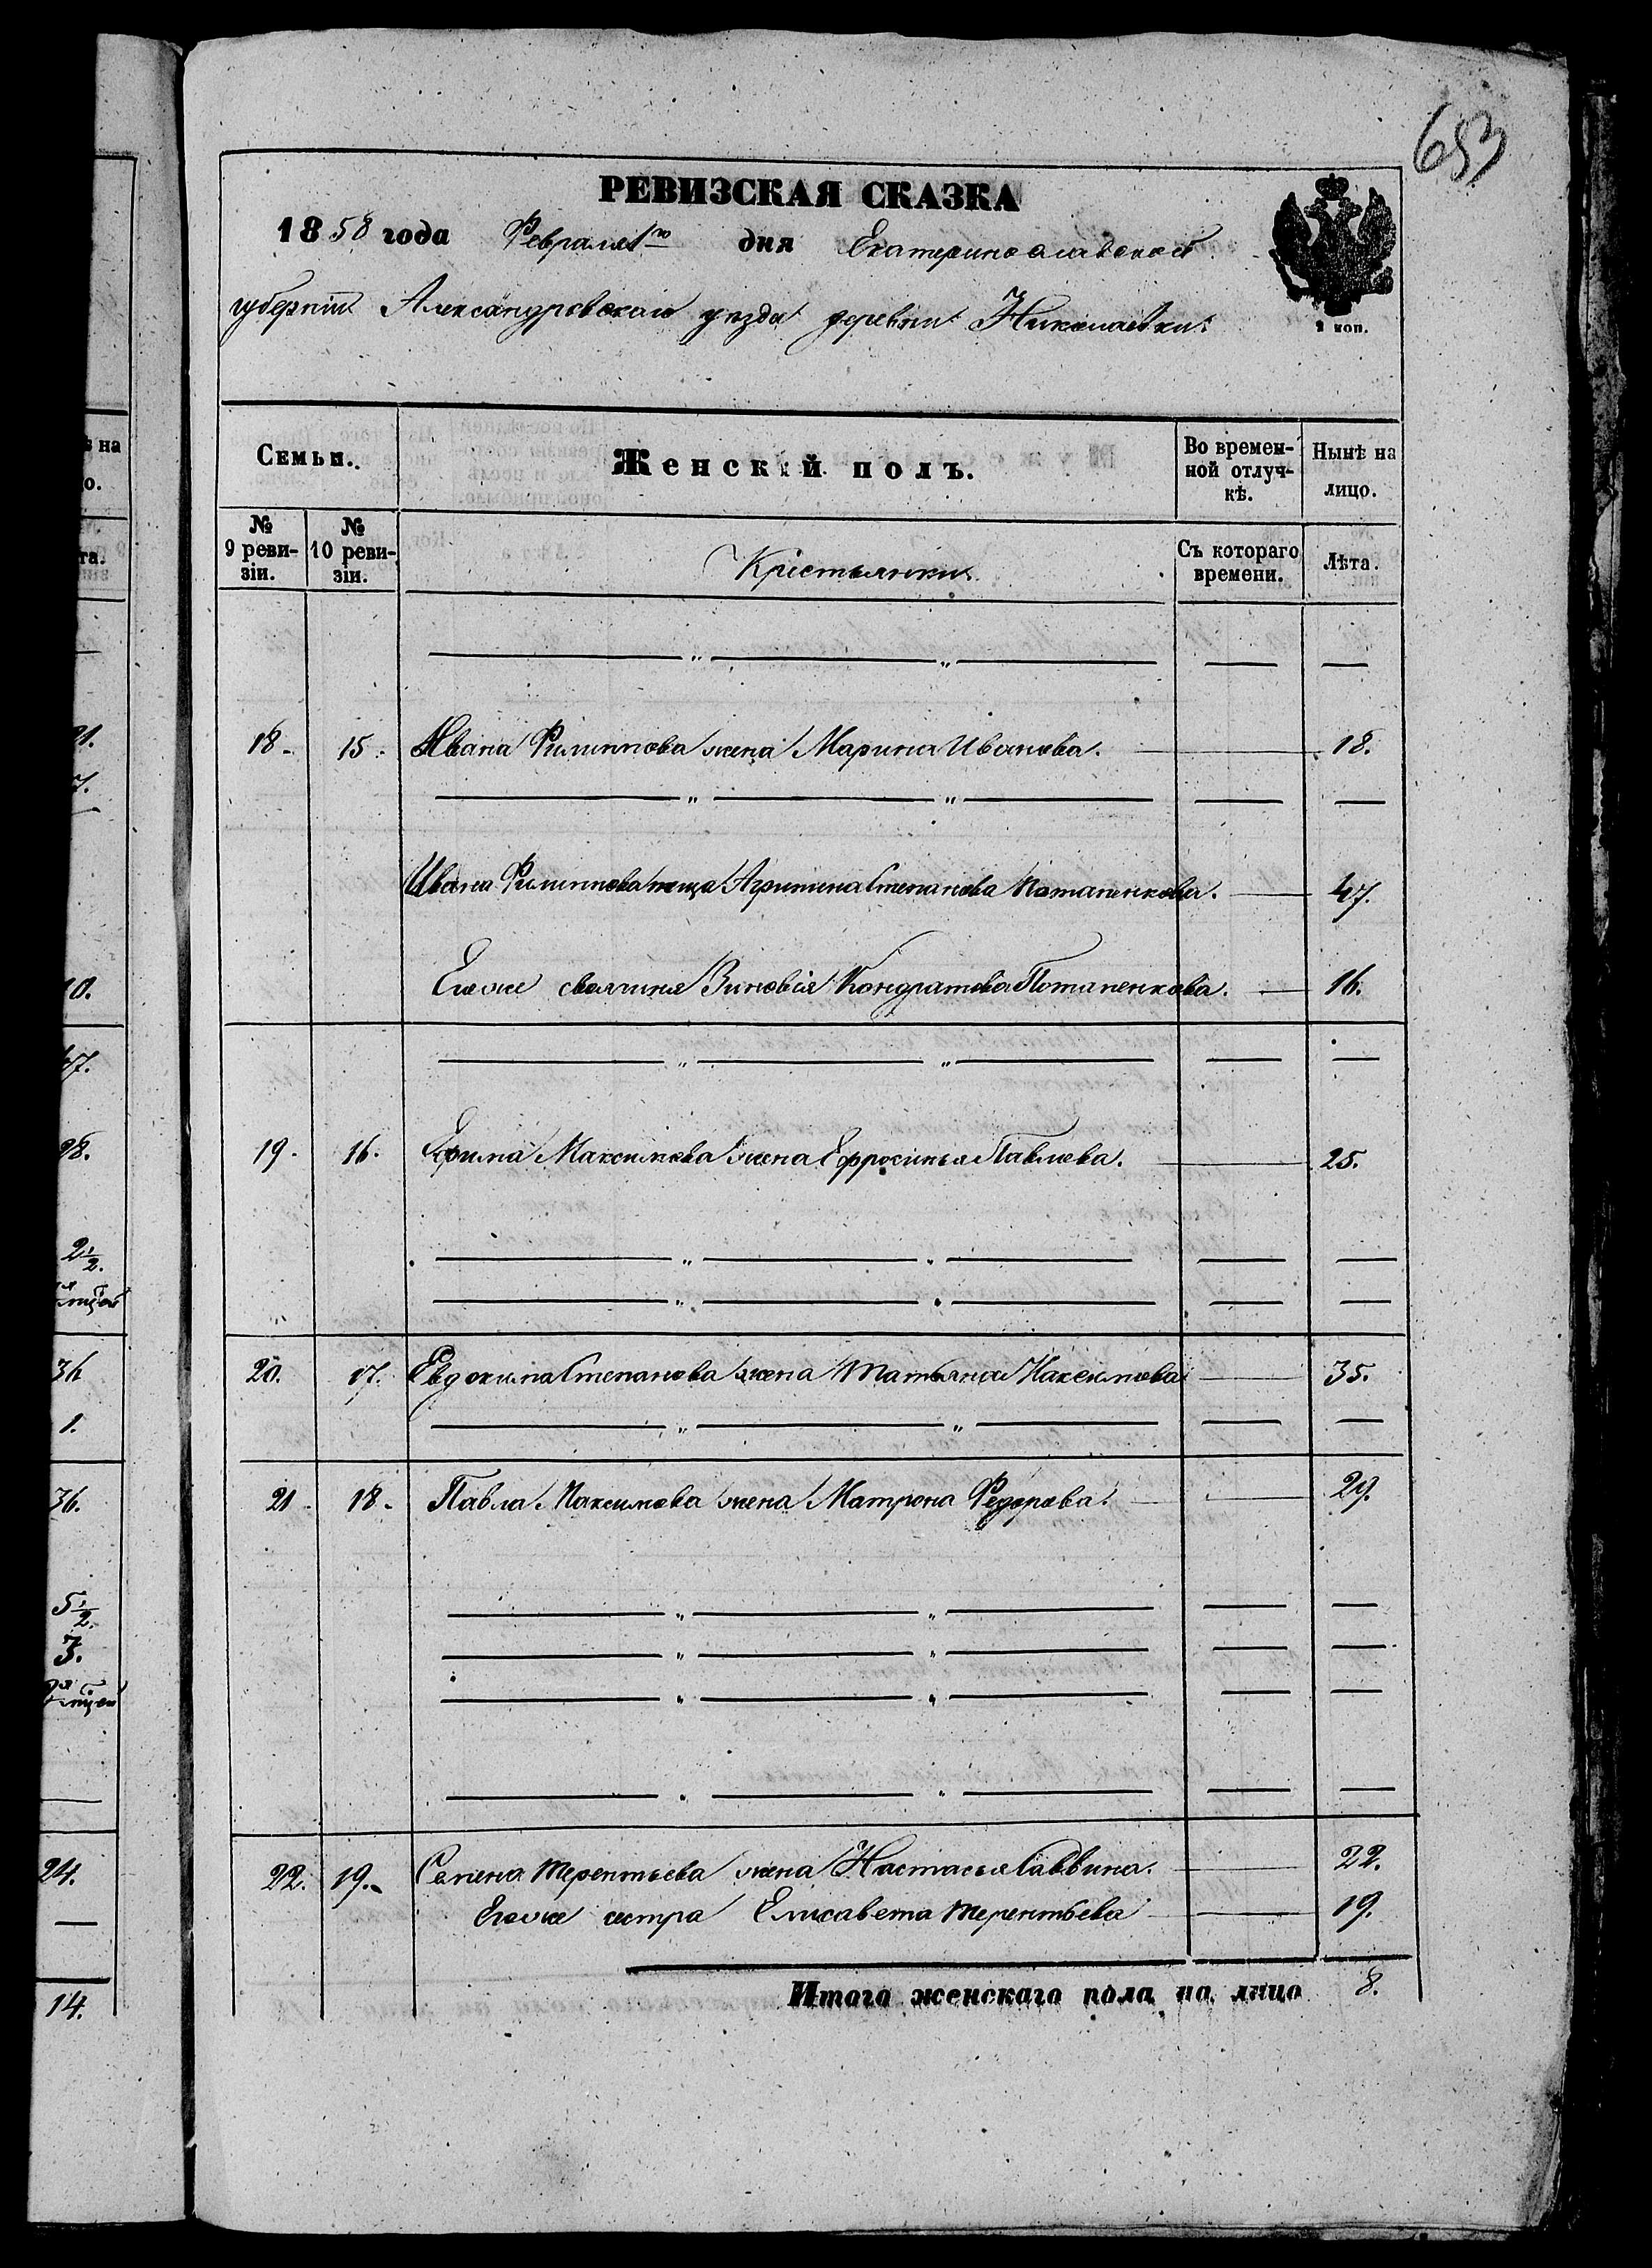 653
РЕВИЗСКАЯ СКАЗКА
1858 года Февраля 1го дня Екатеринославской
губерніи Александровскаго уѣзда деревни Николаевки.
2 коп.
Семьи. Женскій полъ. Во времен- Нынѣ на
ной отлуч- лицо.
кѣ.
№ № Крестьянки Съ котораго Лѣта.
9 реви- 10 реви- времени.
зіи. зіи.
18. 15. Ивана Филиппова жена Марина Иванова. 18.
Ивана Филиппова теща Агрипина Степанова Потапенкова. 47.
Его же своячиня Зиновія Кондратова Потапенкова. 16.
19. 16. Ефима Максимова жена Ефросинья Павлова. 25.
20. 17. Евдокима Степанова жена Татьяна Максимова 35.
21. 18. Павла Максимова жена Матрона Федорова. 29.
22. 19. Семена Терентьева жена Настасья Саввина. 22.
Его же сестра Елисавета Терентьева 19.
Итого женскаго пола на лицо 8.
ѣ на
о.
та.
21.
7.
10.
47.
28.
2 1/2.
36
1.
36.
5 1/2.
3.
24.
14.